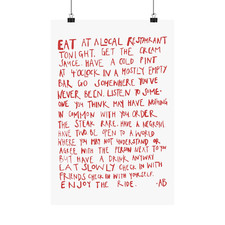 EAT AT A LOCAL RESTAURANT
TONIGHT. GET THE CREAM
SAUCE. HAVE A COLD PINT
AT 4 O'CLOCK IN A MOSTLY EMPTY
BAR. GO SOMEWHERE YOU'VE
NEVER BEEN. LISTEN TO SOME-
ONE YOU THINK MAY HAVE NOTHING
IN COMMON WITH YOU. ORDER
THE STEAK RARE. HAVE A NEGRONI.
HAVE TWO. BE OPEN TO A WORLD
WHERE YOU MAY NOT UNDERSTAND OR
AGREE WITH THE PERSON NEXT TO YOU
BUT HAVE A DRINK ANYWAY.
EAT SLOWLY. CHECK IN WITH
FRIENDS. CHECK IN WITH YOURSELF.
ENJOY THE RIDE. -AB